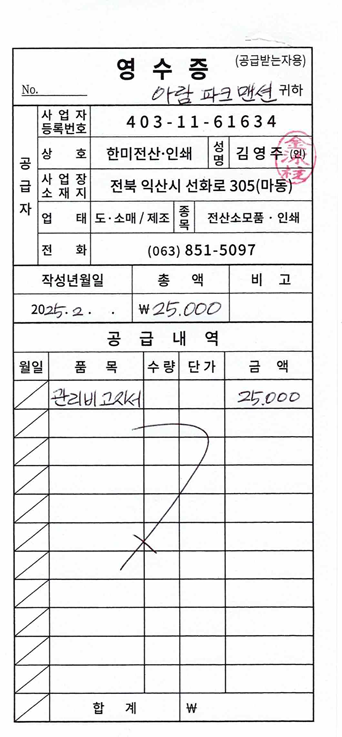 영수증 (공급받는자용)
No. 아람 파크맨션 귀하
공급자
사업자등록번호 403-11-61634
상호 한미전산·인쇄 성명 김영주 (인)
사업장소재지 전북 익산시 선화로 305(마동)
업태 도·소매/제조 종목 전산소모품·인쇄
전화 (063) 851-5097
작성년월일 총액 비고
2025. 2. . ₩25.000
공급내역
월일 품목 수량 단가 금액
관리비고지서 25.000
합계 ₩